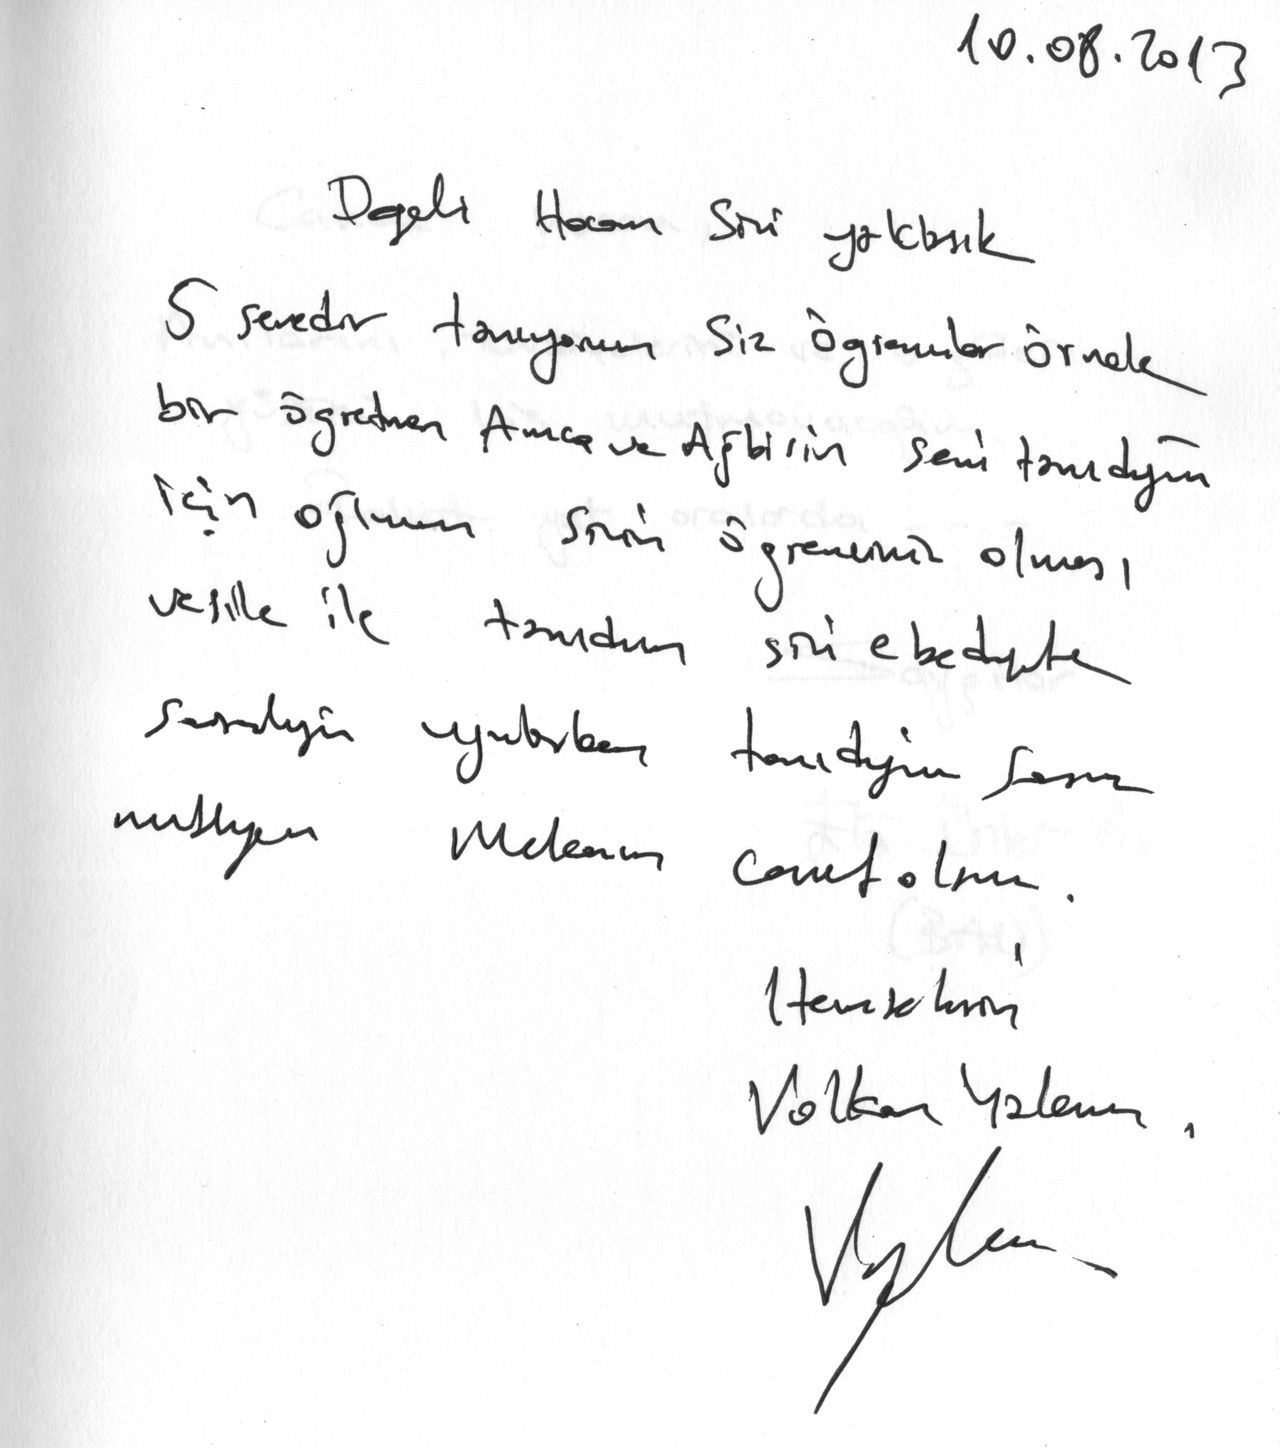 10.08.2013
Değerli Hocam Sizi yaklaşık
5 senedir tanıyorum Siz öğrenciler örnek
bir öğretmen Amca ve Ağbisin seni tanıdığım
için oğlumun sizin öğrenciniz olması
vesile ile tanıdım sizi ebediyete
uğurlarken tanıdığım
mutluyum Mekanın cennet olsun.
Volkan Yalım